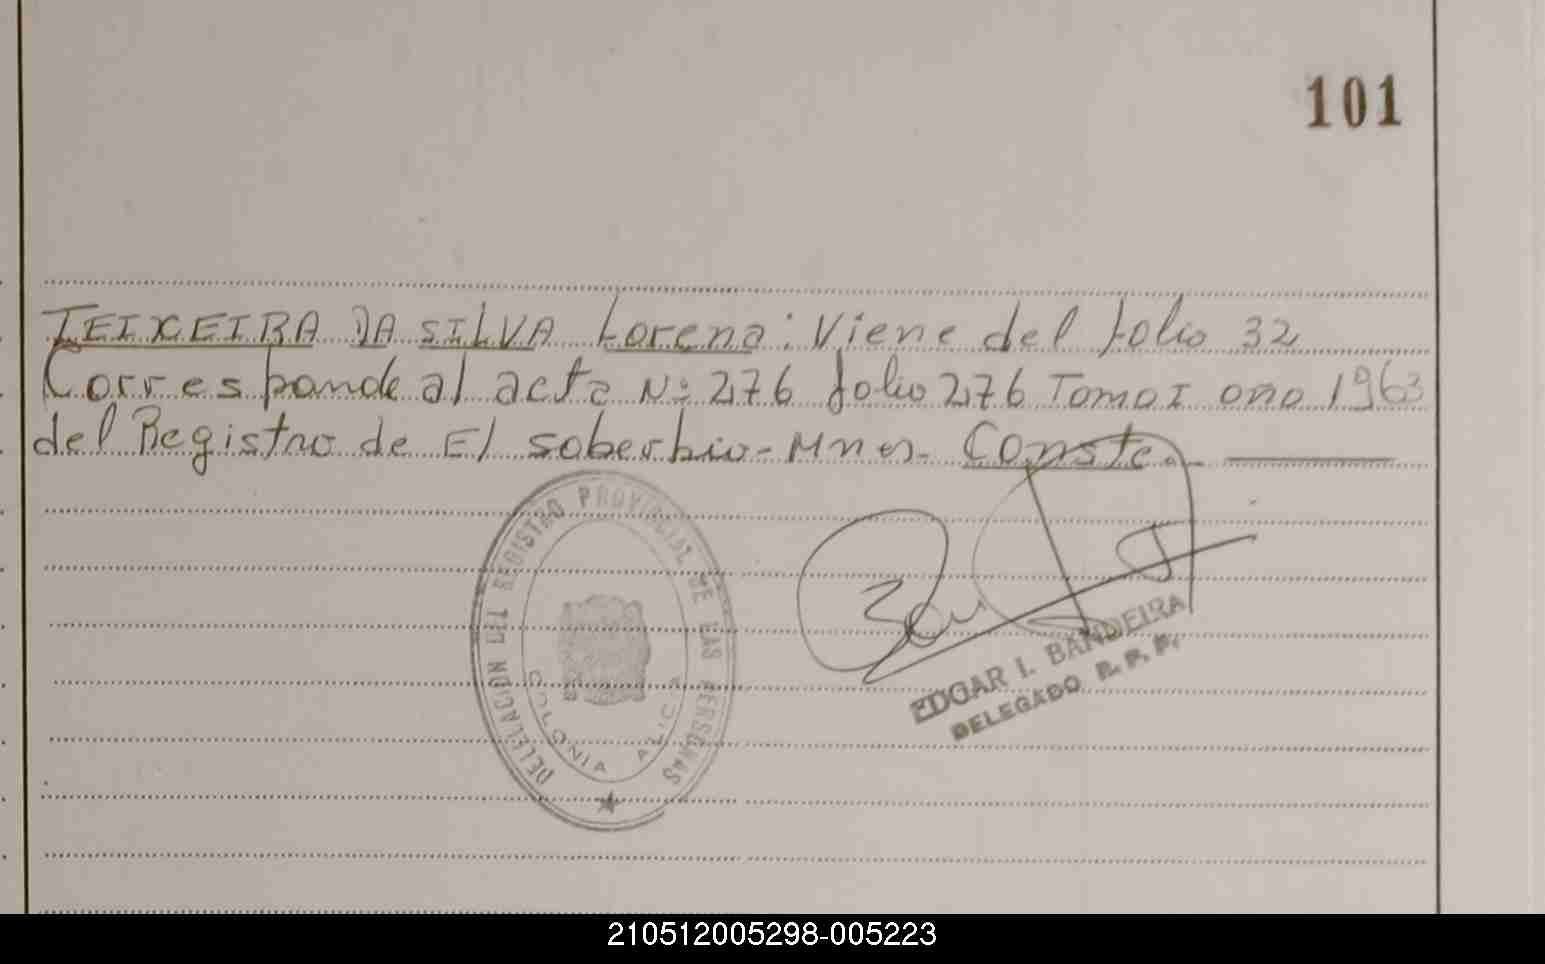 101
TEIXEIRA DA SILVA Lorena: Viene del folio 32
Corresponde al acta Nº 276 folio 276 Tomo I año 1963
del Registro de El soberbio - Mnes. Conste.
DELEGACION DEL REGISTRO PROVINCIAL DE LAS PERSONAS
COLONIA ALICIA
EDGAR I. BANDEIRA
DELEGADO R. P. P.
210512005298-005223